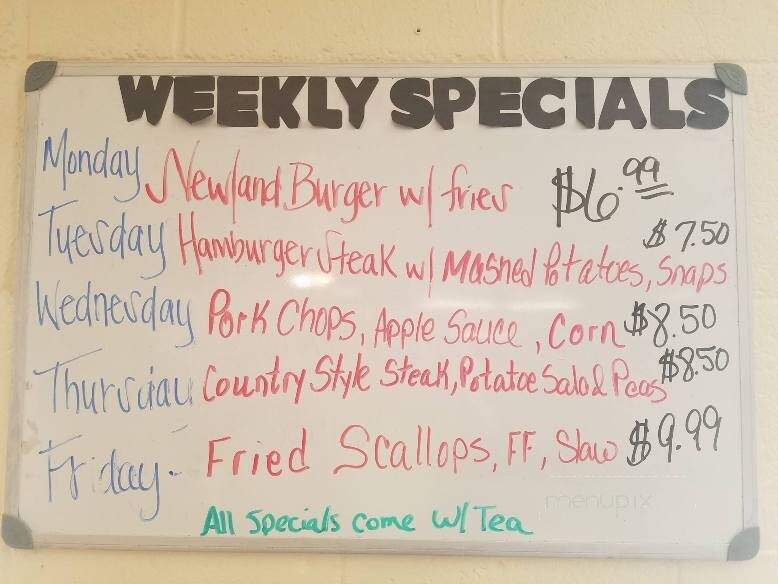 WEEKLY SPECIALS
Monday Newland Burger w/ fries $6.99
Tuesday Hamburger Steak w/ Mashed Potatoes, Snaps $7.50
Wednesday Pork Chops, Apple Sauce, Corn $8.50
Thursday Country Style Steak, Potatoe Salad Peas $8.50
Friday- Fried Scallops, FF, Slaw $9.99
All Specials come w/ Tea
menupix